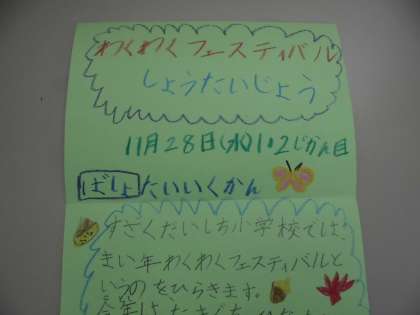 わくわくフェスティバル
しょうたいじょう
11月28日(水)1・2じかん目
ばしょ たいいくかん
すざくだいしち小学校では、
まい年わくわくフェスティバルと
いうのをひらきます。
今年は、